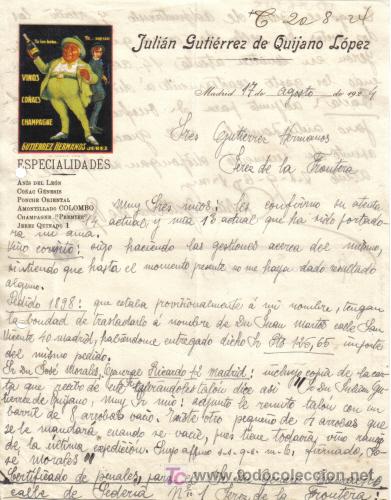 Tc 20-8-24
Julián Gutiérrez de Quijano López
VINOS
COÑACS
CHAMPAGNE
GUTIERREZ HERMANOS
JEREZ
Madrid 17 de Agosto de 1924
Sres Gutierrez Hermanos
Jerez de la Frontera
ESPECIALIDADES
ANÍS DEL LEÓN
COÑAC GÉNESIS
PONCHE ORIENTAL
AMONTILLADO COLOMBO
CHAMPAGNE "PREMIER"
JEREZ QUINADO
Muy Sres mios: les confirmo su atenta
14 actual y mia 13 actual que ha sido portado
ra mi ama.
Vino corinto: sigo haciendo las gestiones acerca del mismo,
sintiendo que hasta el momento presente no me haya dado resultado
alguno.
Pedido 1898: que estaba provisionalmente á mi nombre, tengan
la bondad de trasladarlo á nombre de Dn Juan Martos calle San
Vicente 40 madrid, habiéndome entregado dicho Sr Pts 125,65 importe
del mismo pedido.
Sr Dn José Morales, George Ricardo 12 madrid: incluyo copia de la car
ta que recibo de este talon dice asi "Sr Dn Julian Gu
tierrez de Quijano, muy Sr mio: adjunto le remito talón con un
barril de 8 arrobas vacio. Existe otro pequeño de 4 arrobas que
se le mandará, cuando se vacie, pues tiene todavia, vino rancio
de la última expedición. Suyo affmo s.s.q.s.m.b, firmado, Jo
sé morales"
Certificado de penales, para
calba de Federia Nº 1 Jerez de la Frontera
todocoleccion
www.todocoleccion.net